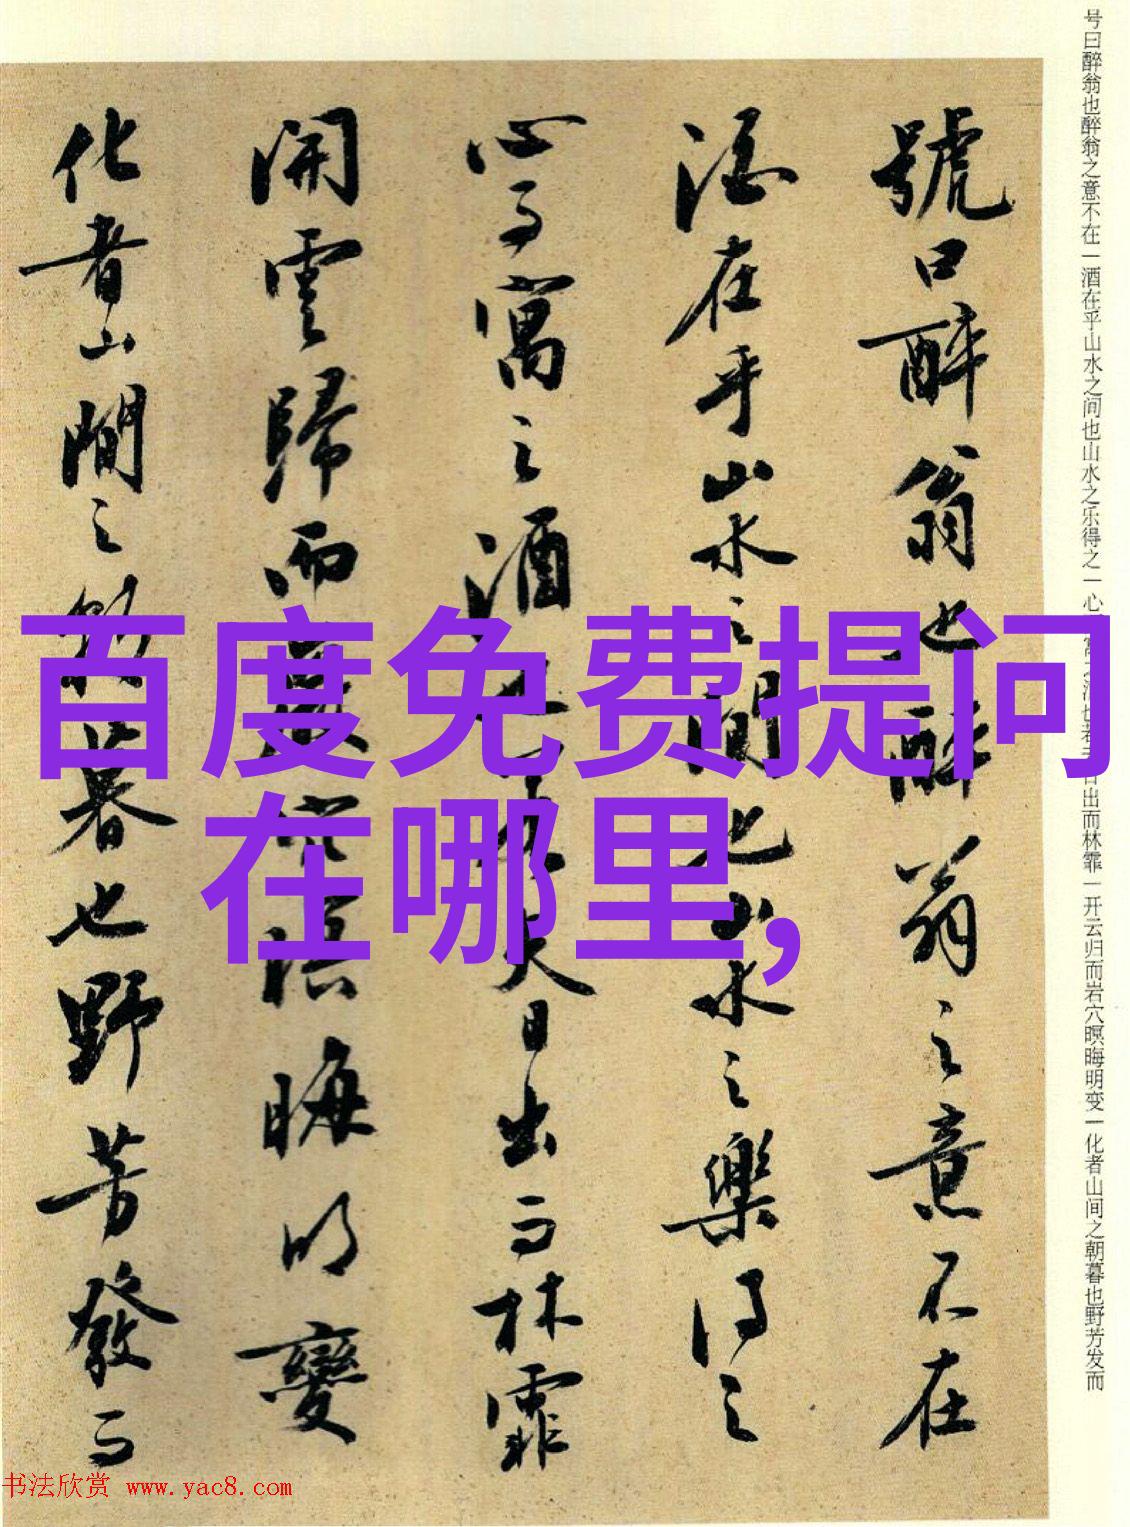 号曰醉翁也醉翁之意不在一酒在乎山水之间也山水之乐得之一心寓之酒也若出而林霏一开云归而岩穴暝晦明变一化者山间之朝暮也野芳发而
號曰醉翁也醉翁之意不在
酒在乎山水之間也山水之樂得之
心而寓之酒夫日出而林霏
開雲歸而暝晦明變
化者山間之朝暮也野芳發而
百度免费提问
在哪里,
书法欣赏 www.yac8.com